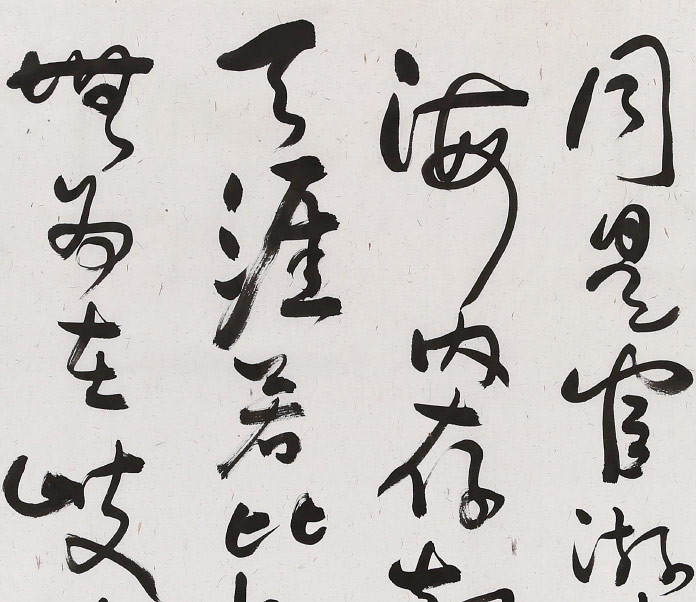 同是宦游
海内存知
天涯若比
無為在岐